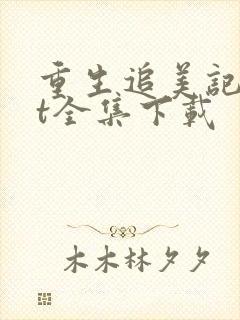 重生追美记
t全集下载
木木林夕夕